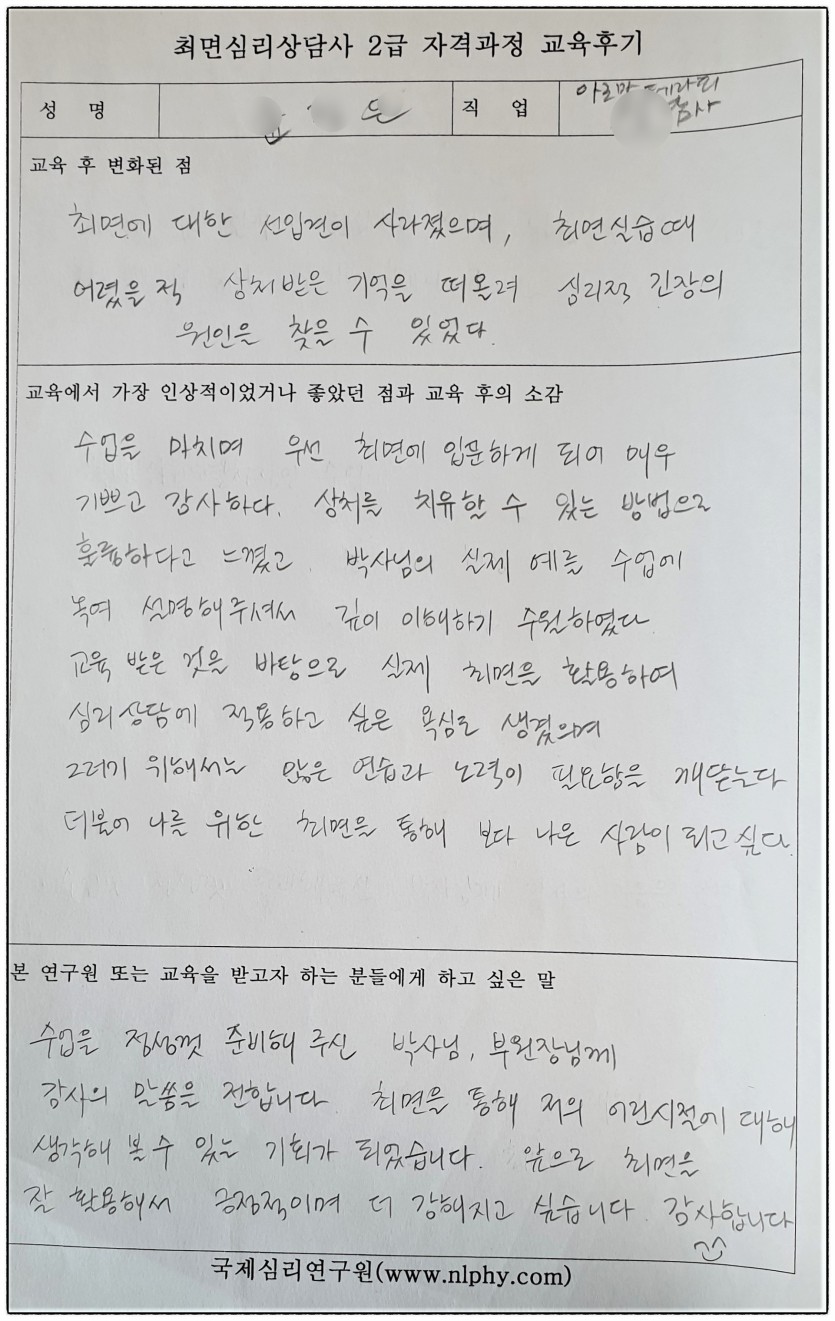 최면심리상담사 2급 자격과정 교육후기
성 명 직 업 아로마 테라피
강사
교육 후 변화된 점
최면에 대한 선입견이 사라졌으며, 최면실습때
어렸을 적 상처받은 기억을 떠올려 심리적 긴장의
원인을 찾을 수 있었다.
교육에서 가장 인상적이었거나 좋았던 점과 교육 후의 소감
수업을 마치며 우선 최면에 입문하게 되어 매우
기쁘고 감사하다. 상처를 치유할 수 있는 방법으로
훌륭하다고 느꼈고, 박사님의 실제 예를 수업에
녹여 설명해주셔서 깊이 이해하기 수월하였다
교육 받은 것을 바탕으로 실제 최면을 활용하여
심리상담에 적용하고 싶은 욕심도 생겼으며
그러기 위해서는 많은 연습과 노력이 필요함을 깨닫는다
더불어 나를 위한 최면을 통해 보다 나은 사람이 되고 싶다.
본 연구원 또는 교육을 받고자 하는 분들에게 하고 싶은 말
수업을 정성껏 준비해 주신 박사님, 부원장님께
감사의 말씀을 전합니다. 최면을 통해 저의 어린시절에 대해
생각해 볼 수 있는 기회가 되었습니다. 앞으로 최면을
잘 활용해서 긍정적이며 더 강해지고 싶습니다. 감사합니다
국제심리연구원(www.nlphy.com)